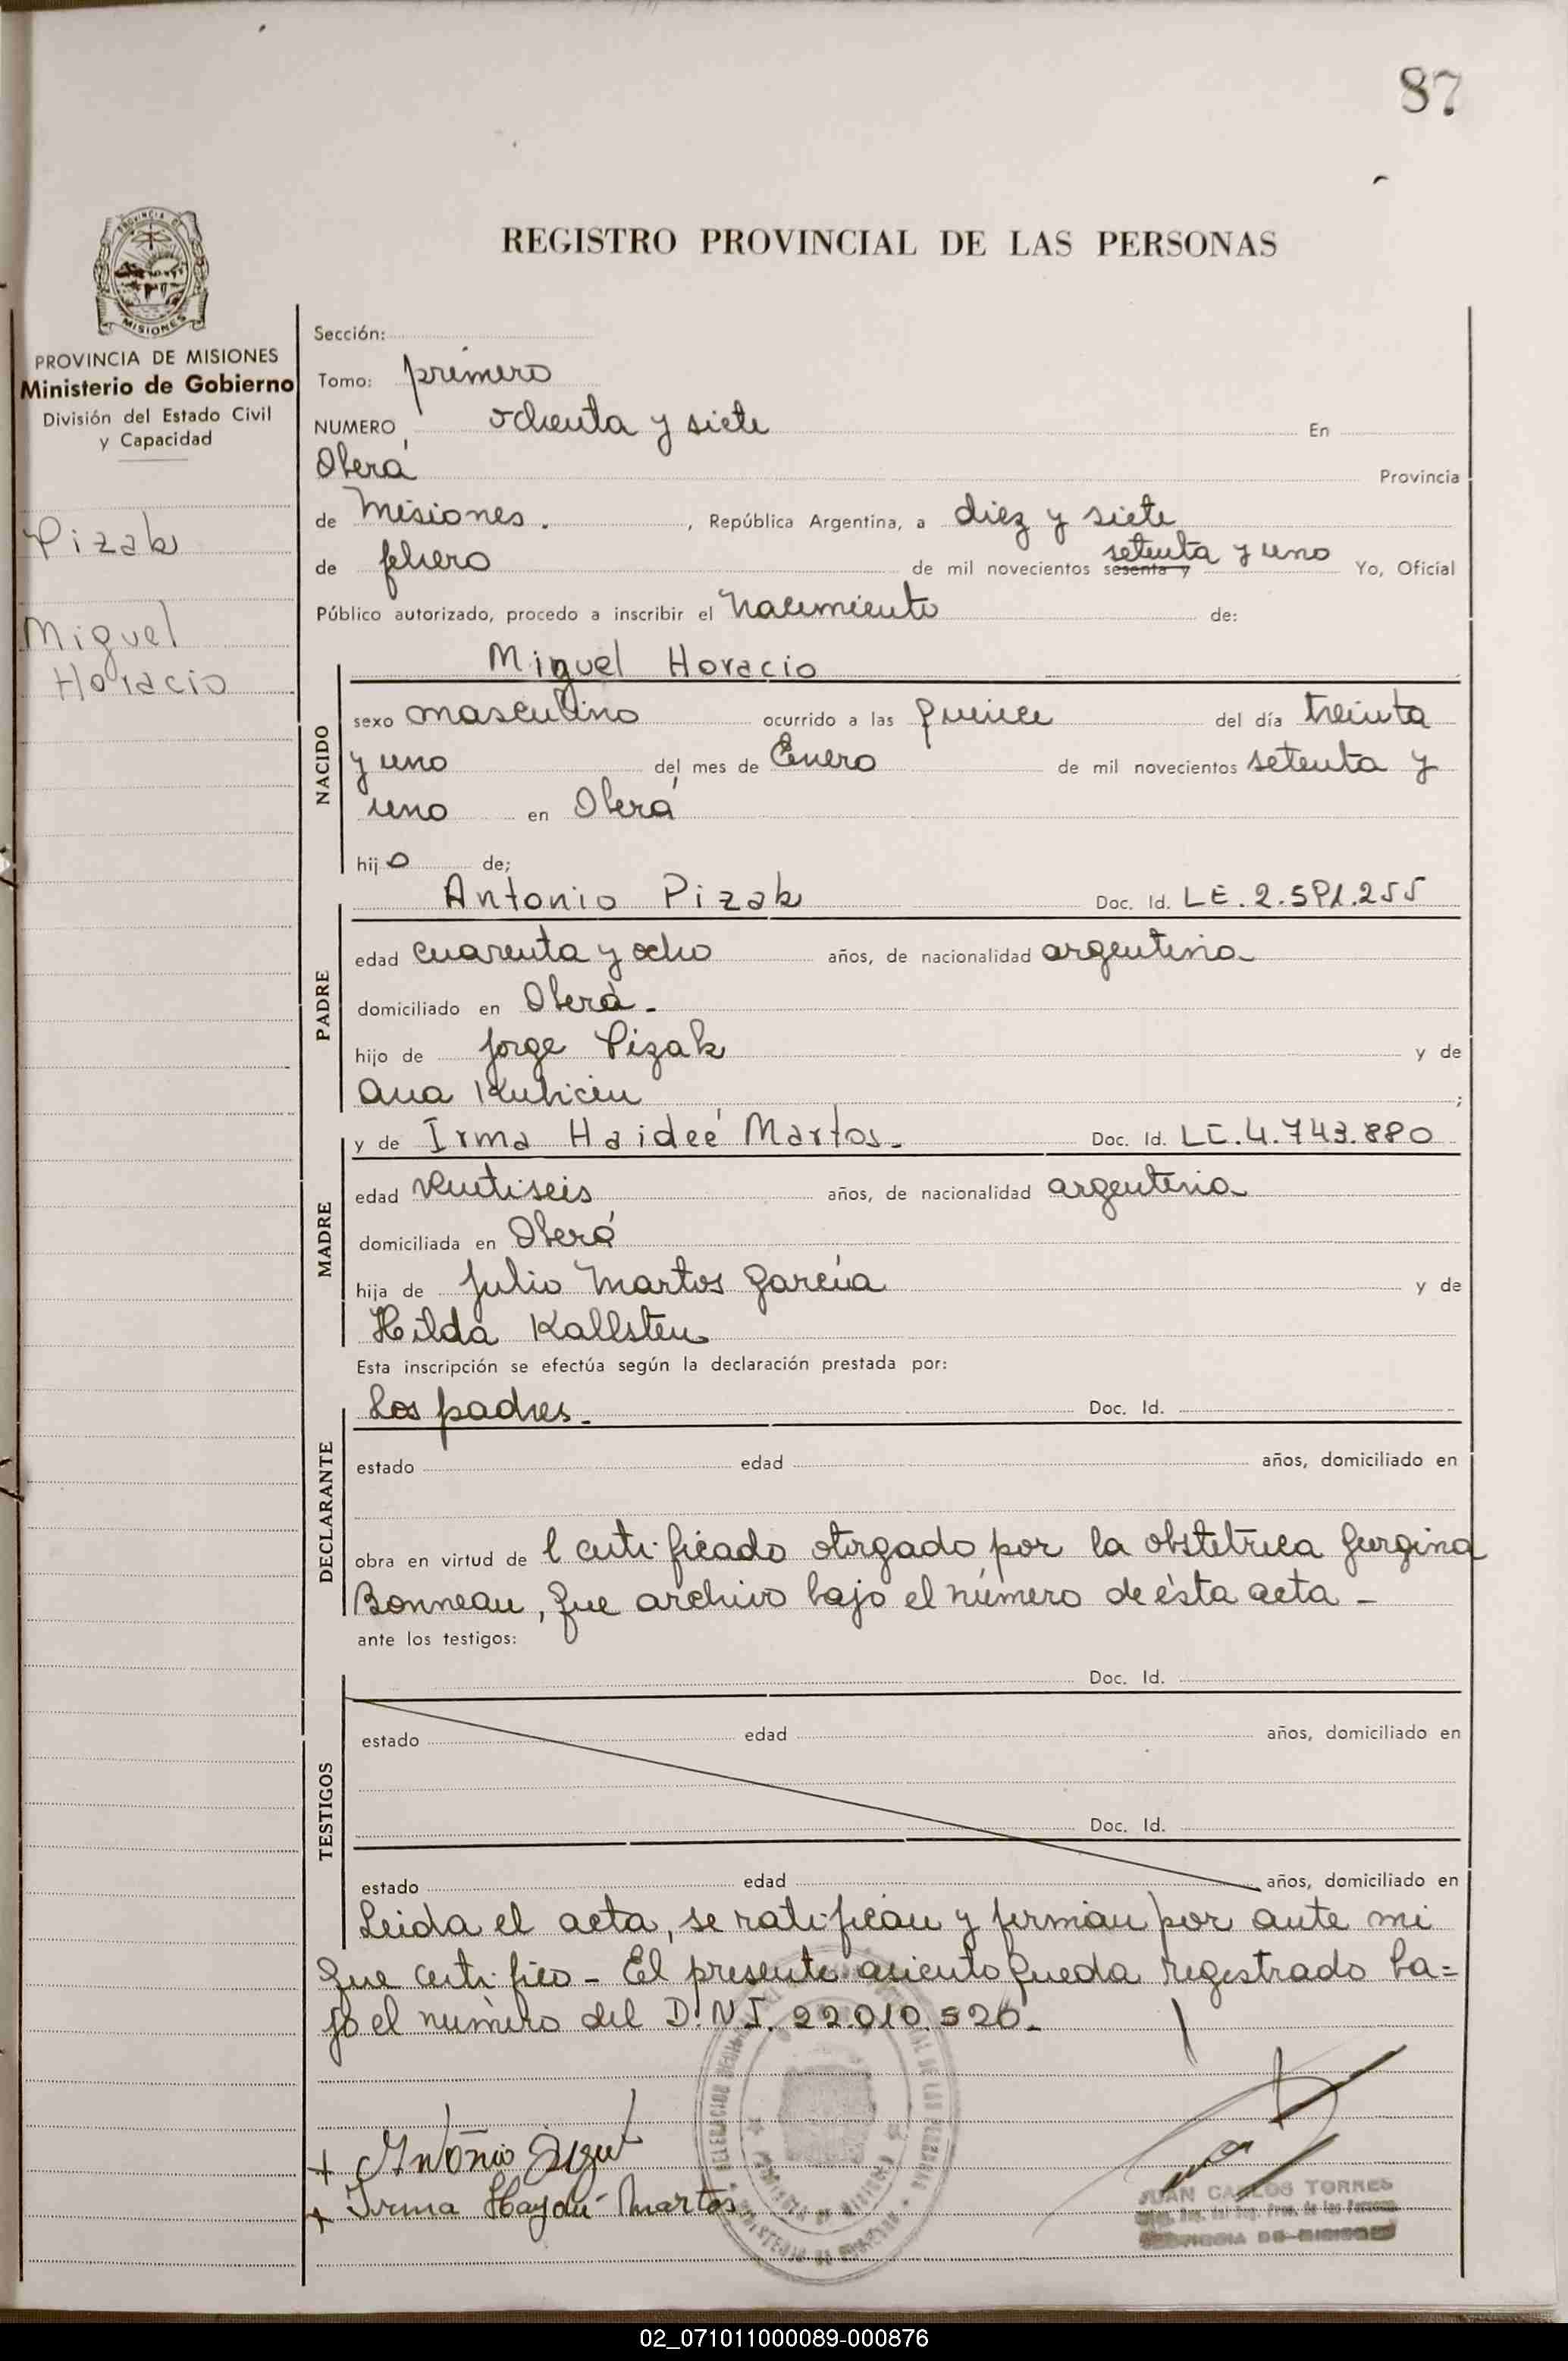 87
REGISTRO PROVINCIAL DE LAS PERSONAS
PROVINCIA DE
MISIONES
PROVINCIA DE MISIONES
Ministerio de Gobierno
División del Estado Civil
y Capacidad
Pizak
Miguel
Horacio
Sección:
Tomo: primero
NUMERO ochenta y siete En
Oberá Provincia
de Misiones. , República Argentina, a diez y siete
de febrero de mil novecientos sesenta y setenta y uno Yo, Oficial
Público autorizado, procedo a inscribir el nacimiento de:
NACIDO
Miguel Horacio
sexo masculino ocurrido a las quince del día treinta
y uno del mes de Enero de mil novecientos setenta y
uno en Oberá
hijo de;
PADRE
Antonio Pizak Doc. Id. LE. 2.581.255
edad cuarenta y ocho años, de nacionalidad argentina
domiciliado en Oberá.
hijo de Jorge Pizak y de
Ana Kubicin ;
MADRE
y de Irma Haideé Martos. Doc. Id. LC. 4.743.880
edad veintiseis años, de nacionalidad argentina
domiciliada en Oberá
hija de Julio Martos García y de
Hilda Kallsten
Esta inscripción se efectúa según la declaración prestada por:
DECLARANTE
Los padres. Doc. Id.
estado edad años, domiciliado en
obra en virtud de l certificado otorgado por la obstetrica Georgina
Bonneau, que archivo bajo el número de ésta acta -
ante los testigos:
TESTIGOS
Doc. Id.
estado edad años, domiciliado en
Doc. Id.
estado edad años, domiciliado en
Leida el acta, se ratifican y firman por ante mi
que certifico - El presente asiento queda registrado ba=
jo el número del D.N.I. 22.010.526.
+ Antonio
+ Irma Haydeé Martos
JUAN CARLOS TORRES
PROVINCIA DE MISIONES
02_071011000089-000876